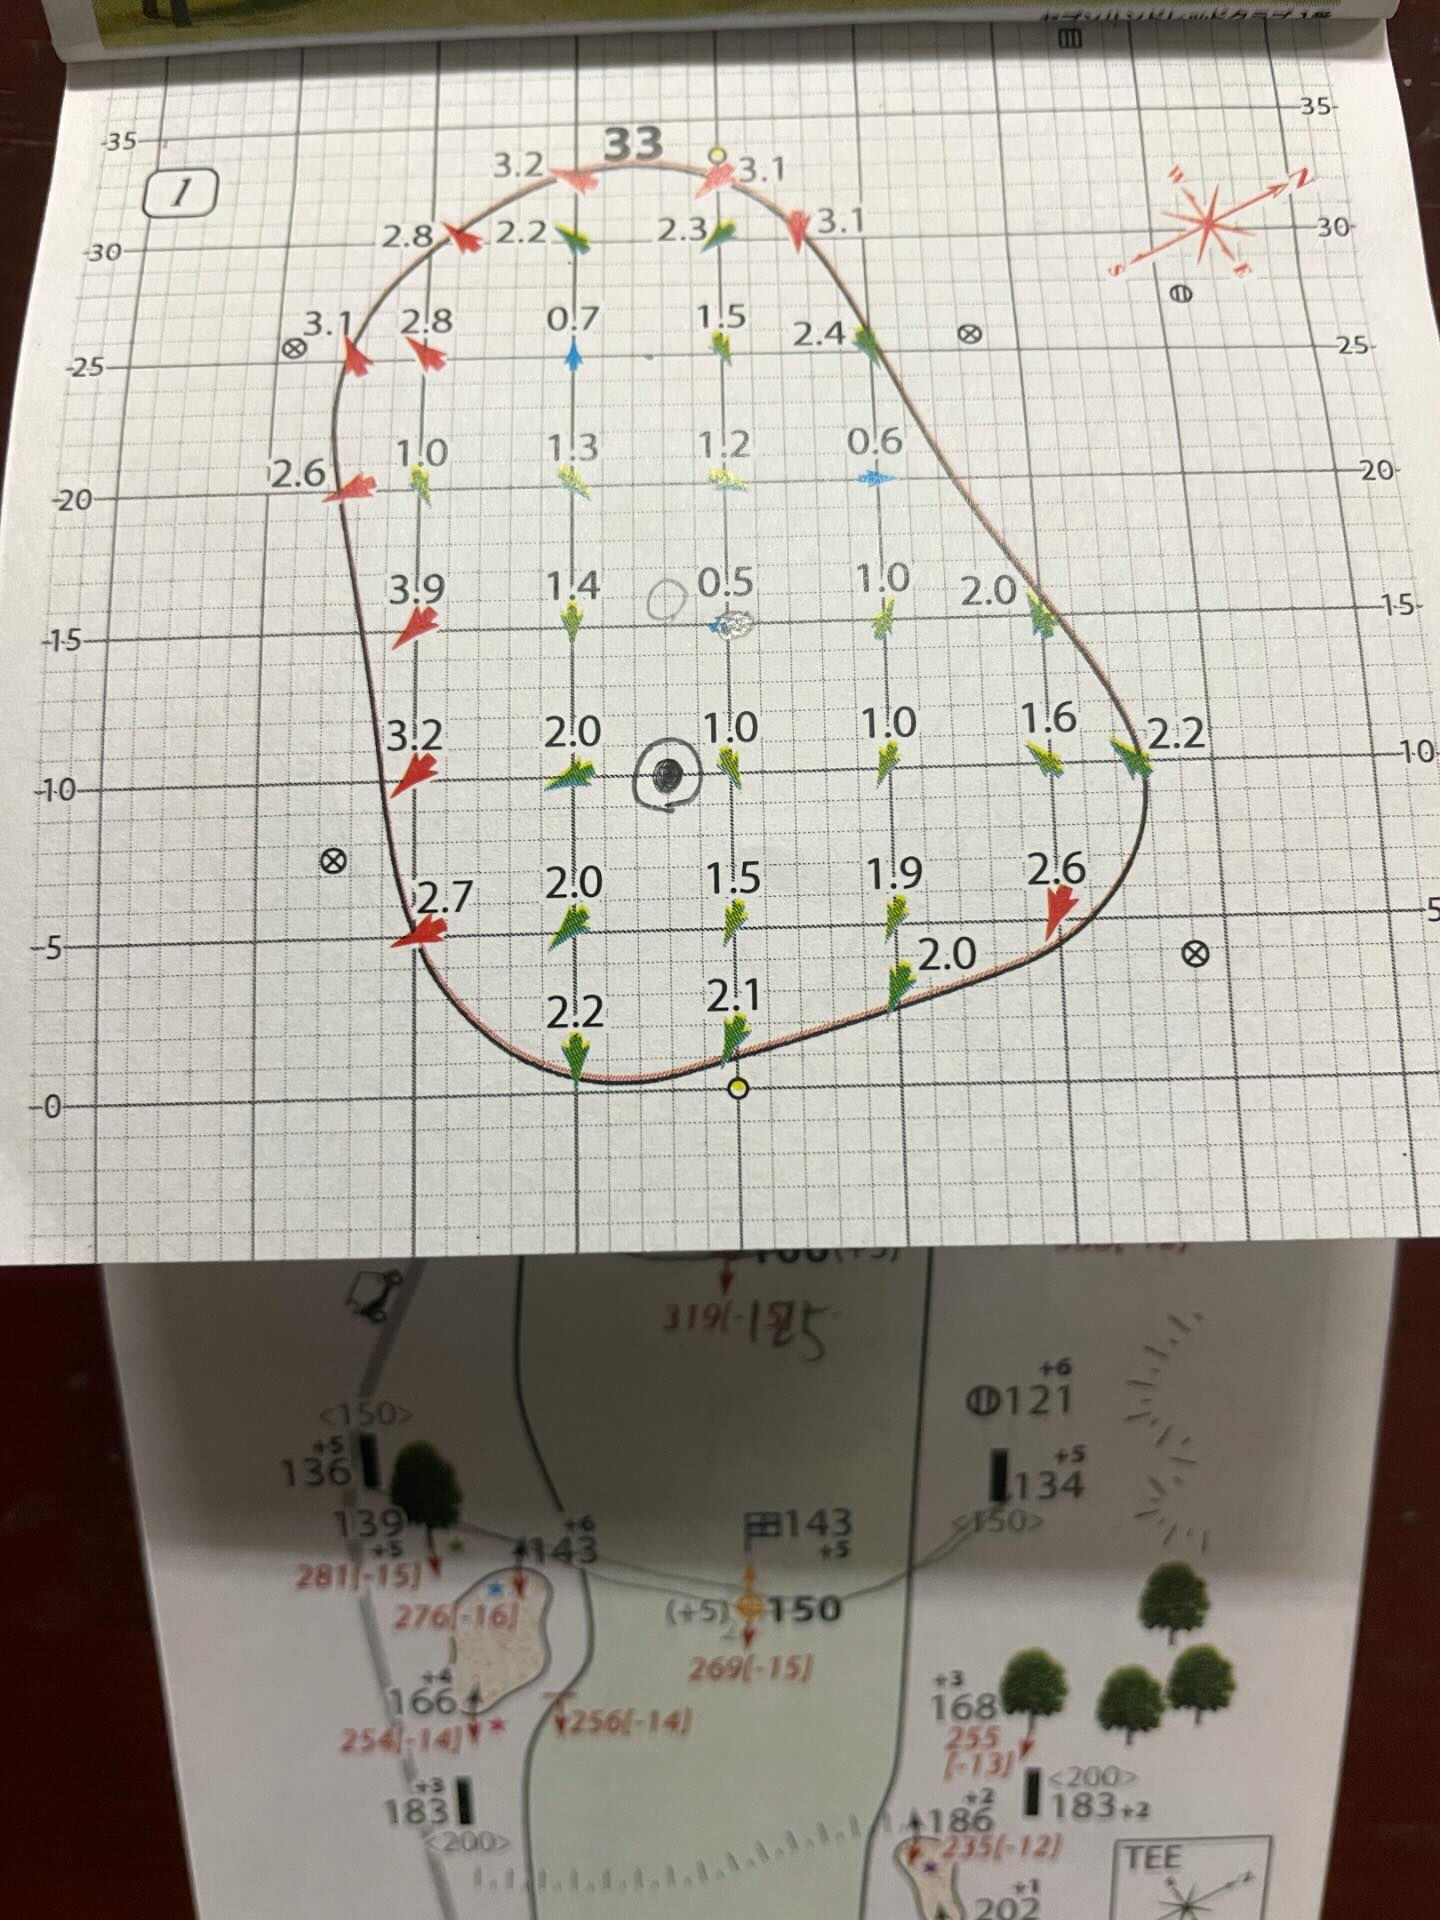 35
35
33
1
3.2
3.1
N
W
30
2.8
2.2
2.3
3.1
30
S
E
3.1
2.8
0.7
1.5
2.4
25
25
2.6
1.0
1.3
1.2
0.6
20
20
3.9
1.4
0.5
1.0
2.0
15
15
3.2
2.0
1.0
1.0
1.6
2.2
10
10
2.7
2.0
1.5
1.9
2.6
5
5
2.2
2.1
2.0
0
319[-15]
125
<150>
+5
136
139
+5
281[-15]
+6
143
276[-16]
143
+5
(+5) 150
269[-15]
+6
121
+5
134
<150>
+4
166
254[-14]
256[-14]
+3
168
255
[-13]
+3
183
<200>
<200>
183+2
+2
186
235[-12]
TEE
+1
202